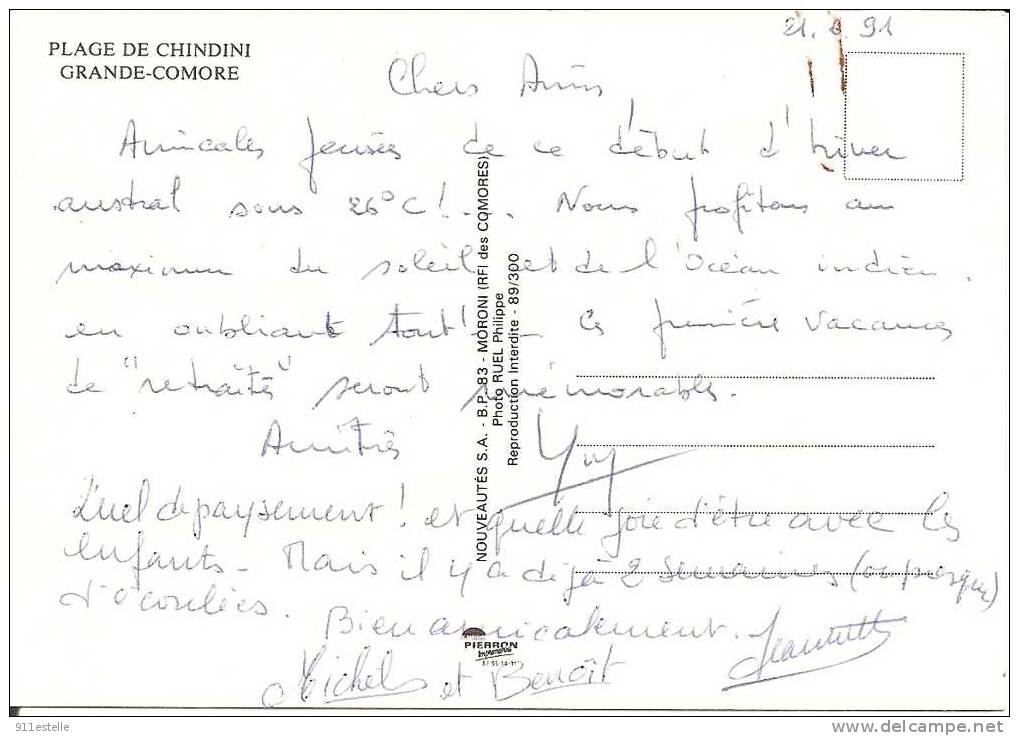 PLAGE DE CHINDINI
GRANDE-COMORE
Chers Amis
Amicales pensées de ce début d'hiver
austral sous 26°C!... Nous profitons au
maximum du soleil et de l'Océan indien,
en oubliant tout!__ Ces première vacances
de "retraités" seront mémorables.
Amitiés
Quel depaysement! et quelle joie d'être avec les
enfants - Mais il y a déjà 2 semaines (ou presque)
d'écoulées. Bien amicalement.
Michel et Benoît
NOUVEAUTÉS S.A. - B.P. 83 - MORONI (RFI des COMORES)
Photo RUEL Philippe
Reproduction Interdite - 89/300
PIERRON
911estelle
delcampe.net